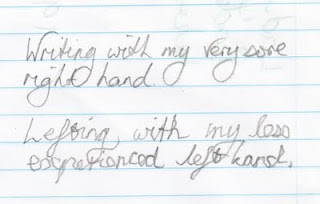 Writing with my very sore
right hand.
Lefting with my less
experienced left hand.